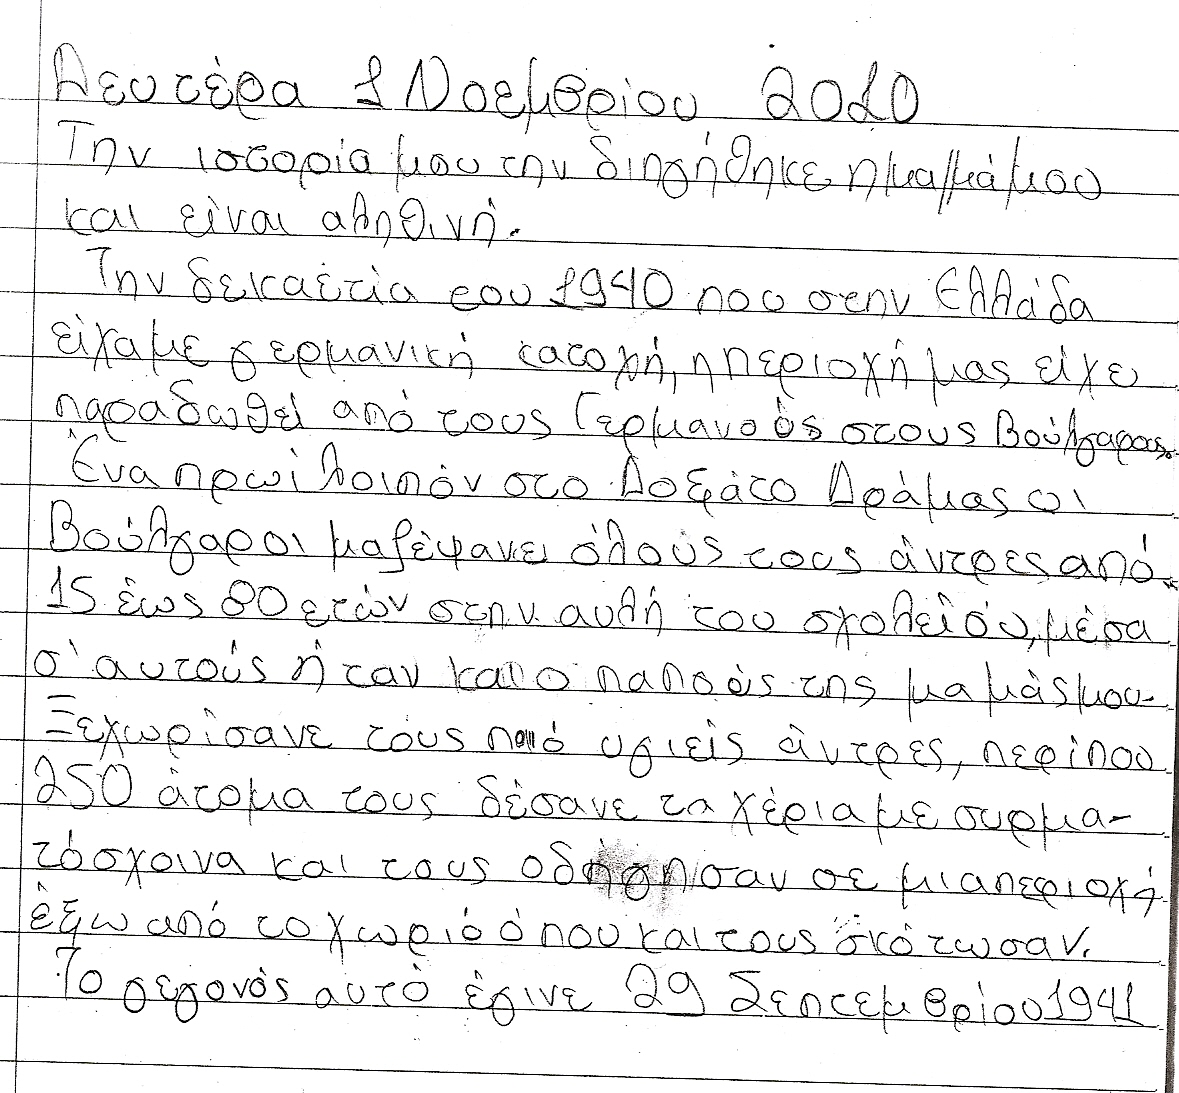 Δευτέρα 1 Νοεμβρίου 2010
Την ιστορία μου την διηγήθηκε η μαμά μου
και είναι αληθινή.
Την δεκαέτία του 1940 που στην Ελλάδα
είχαμε γερμανική κατοχή, η περιοχή μας είχε
παραδωθεί από τους Γερμανούς στους Βούλγαρους.
Ένα πρωί λοιπόν στο Δοξάτο Δράμας οι
Βούλγαροι μαζέψανε όλους τους άντρες από
15 έως 80 ετών στην αυλή του σχολείού, μέσα
σ' αυτούς ήταν και ο παπούς της μαμάς μου.
Ξεχωρίσανε τους πιό υγιείς άντρες, περίπου
250 άτομα τους δέσανε τα χέρια με συρμα-
τόσχοινα και τους οδήγησαν σε μια περιοχή
έξω από το χωριό όπου και τους σκότωσαν.
Το γεγονός αυτό έγινε 29 Σεπτεμβρίου 1941